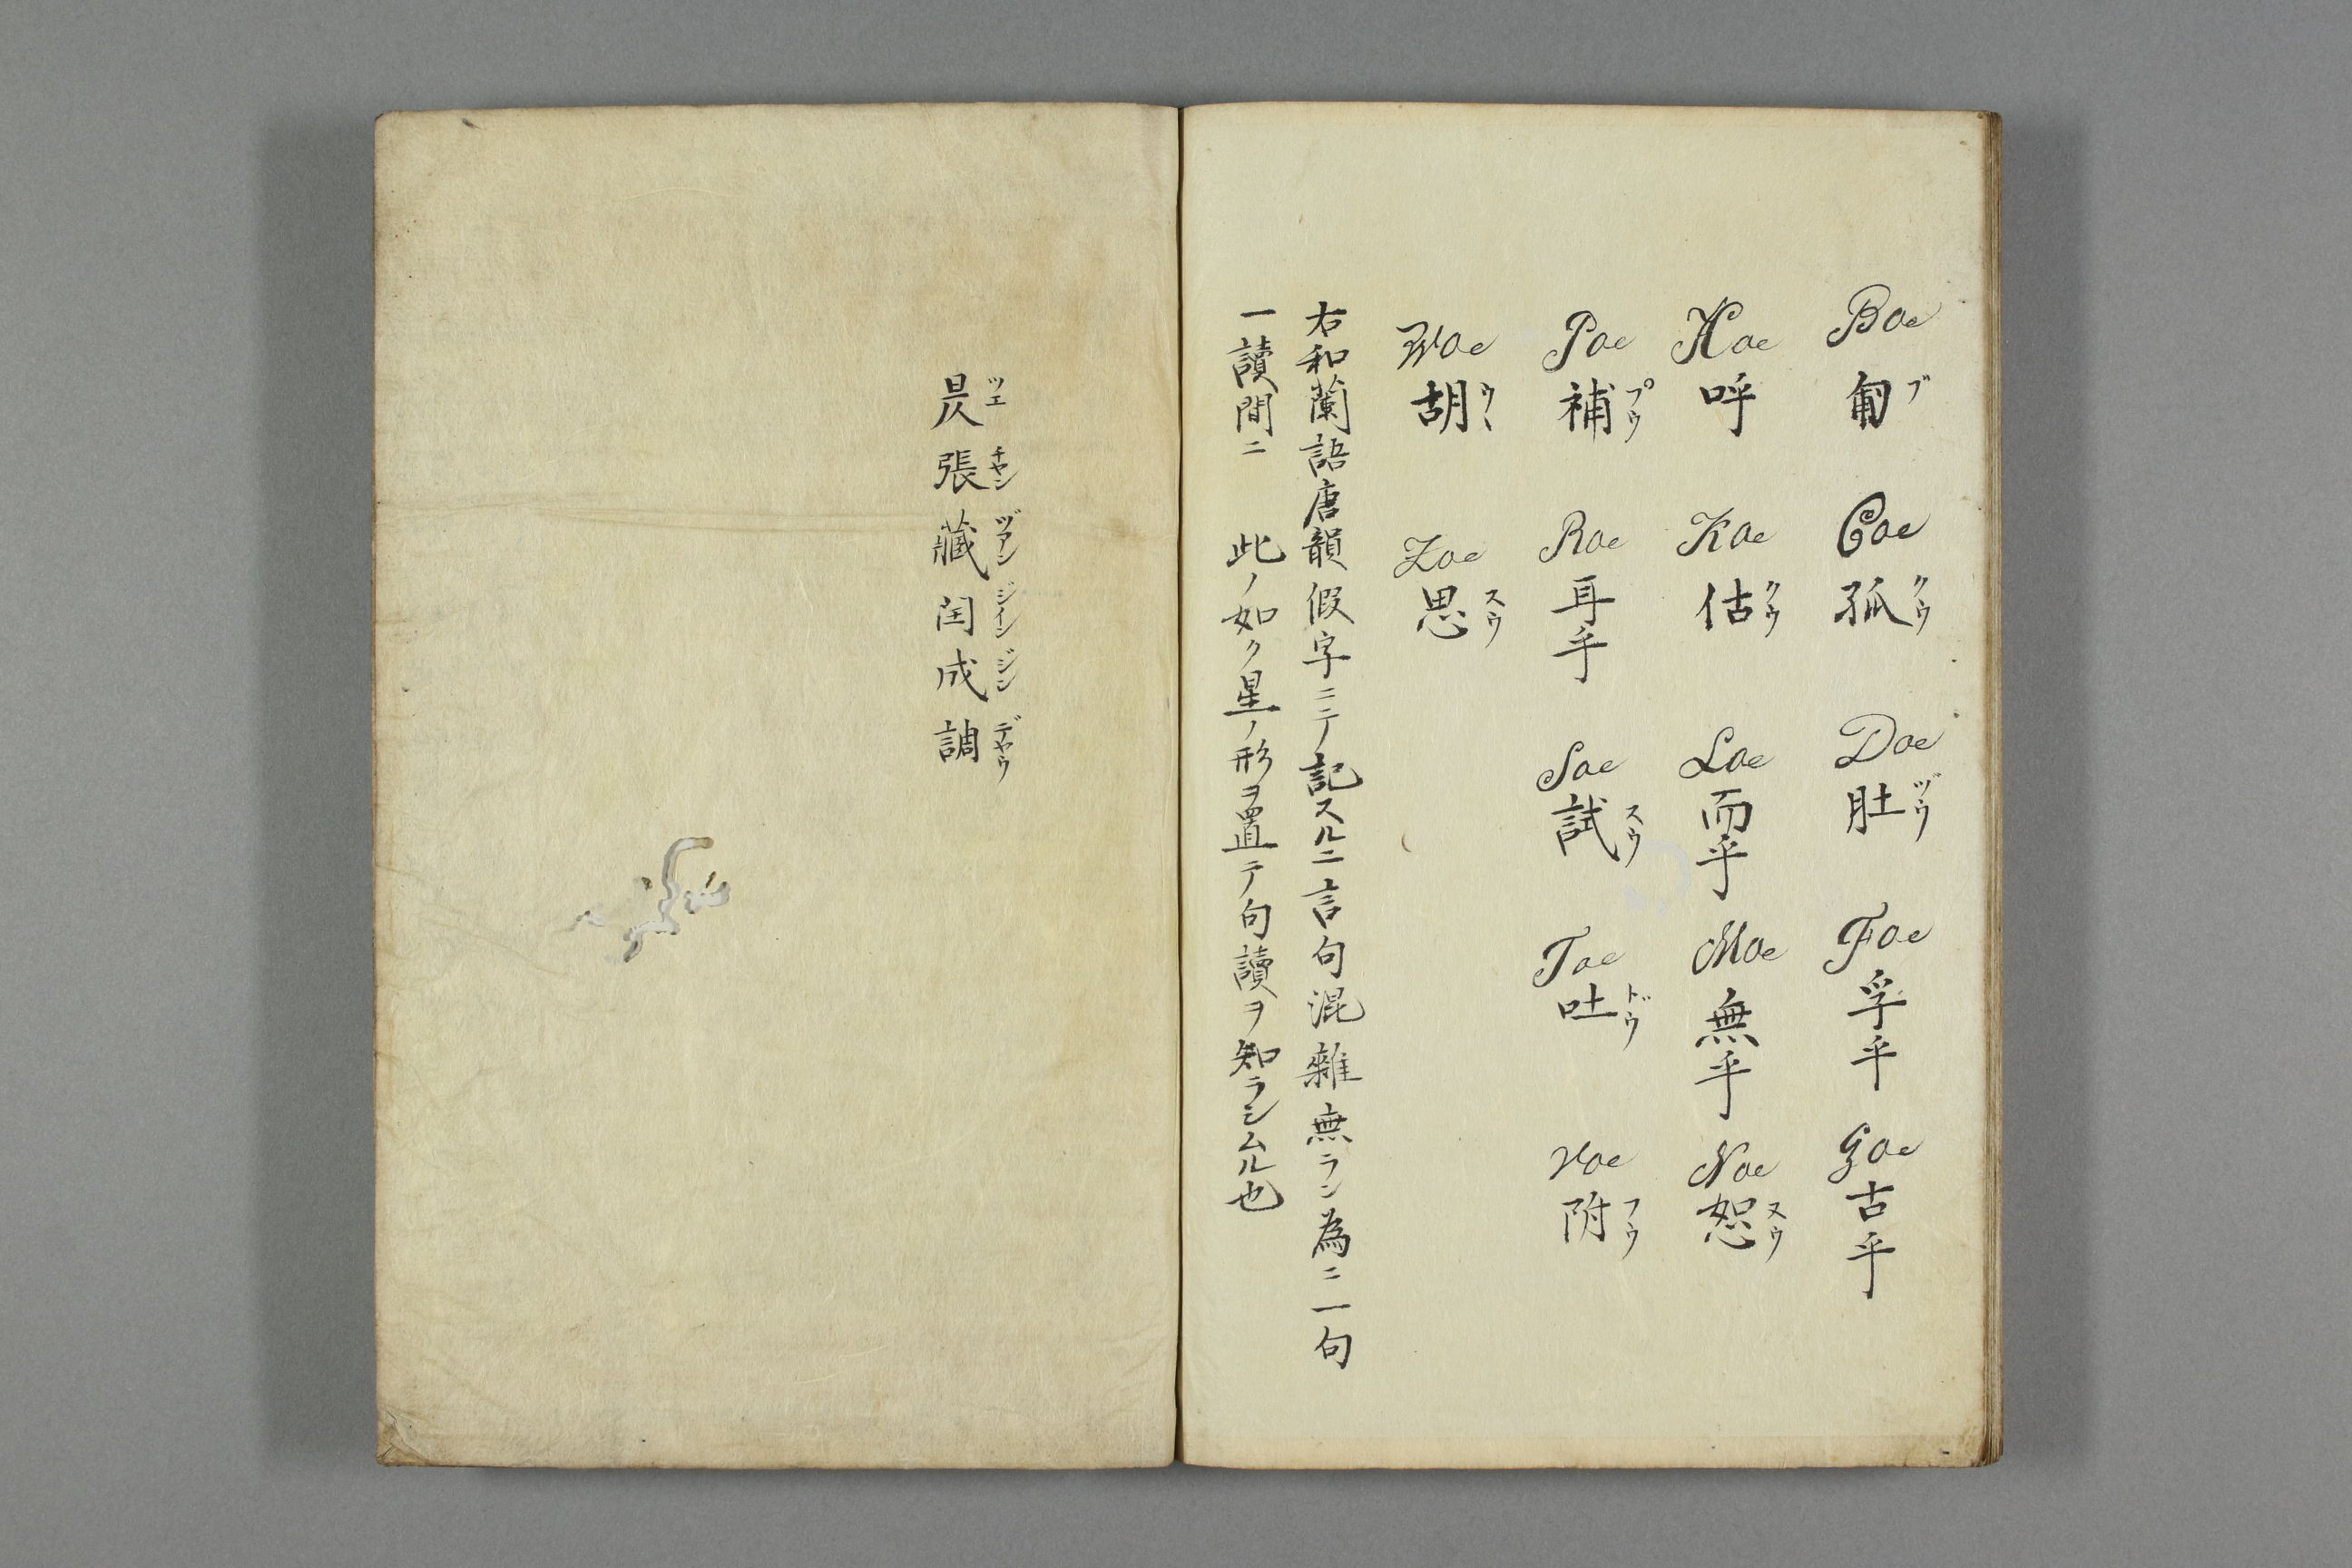 Boe 匍ブ Coe 孤クウ Doe 肚ヅウ Foe 孚乎 Goe 古乎
Hoe 呼 Koe 估クウ Loe 而乎 Moe 無乎 Noe 恕ヌウ
Poe 補プウ Roe 耳乎 Soe 試スウ Toe 吐ドウ Voe 附フウ
Woe 胡ウー Zoe 思スウ
右和蘭語唐韻假字ニテ記スルニ言句混雜無ラン為ニ一句
一讀間ニ 此ノ如ク星ノ形ヲ置テ句讀ヲ知ラシムル也
昃ツエ 張チヤン 藏ヅアン 閏ジイン 成ジン 調デヤウ